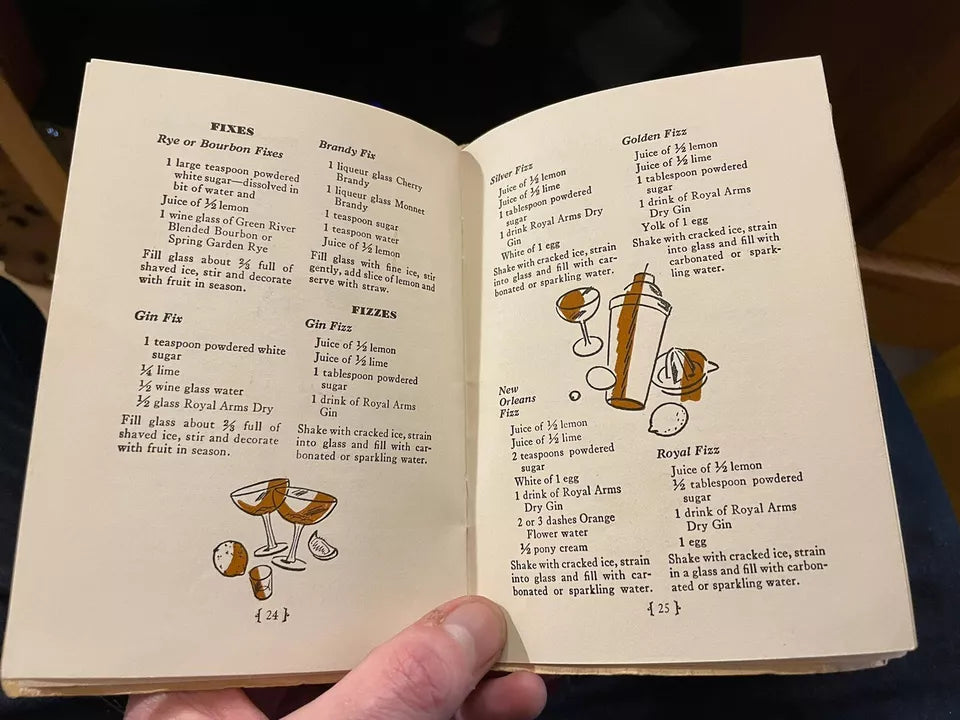 FIXES
Rye or Bourbon Fixes
1 large teaspoon powdered
white sugar—dissolved in
bit of water and
Juice of ½ lemon
1 wine glass of Green River
Blended Bourbon or
Spring Garden Rye
Fill glass about ⅔ full of
shaved ice, stir and decorate
with fruit in season.
Gin Fix
1 teaspoon powdered white
sugar
¼ lime
½ wine glass water
½ glass Royal Arms Dry
Fill glass about ⅔ full of
shaved ice, stir and decorate
with fruit in season.
Brandy Fix
1 liqueur glass Cherry
Brandy
1 liqueur glass Monnet
Brandy
1 teaspoon sugar
1 teaspoon water
Juice of ½ lemon
Fill glass with fine ice, stir
gently, add slice of lemon and
serve with straw.
FIZZES
Gin Fizz
Juice of ½ lemon
Juice of ½ lime
1 tablespoon powdered
sugar
1 drink of Royal Arms
Gin
Shake with cracked ice, strain
into glass and fill with car-
bonated or sparkling water.
{ 24 }
Silver Fizz
Juice of ½ lemon
Juice of ½ lime
1 tablespoon powdered
sugar
1 drink Royal Arms Dry
Gin
White of 1 egg
Shake with cracked ice, strain
into glass and fill with car-
bonated or sparkling water.
New
Orleans
Fizz
Juice of ½ lemon
Juice of ½ lime
2 teaspoons powdered
sugar
White of 1 egg
1 drink of Royal Arms
Dry Gin
2 or 3 dashes Orange
Flower water
½ pony cream
Shake with cracked ice, strain
into glass and fill with car-
bonated or sparkling water.
Golden Fizz
Juice of ½ lemon
Juice of ½ lime
1 tablespoon powdered
sugar
1 drink of Royal Arms
Dry Gin
Yolk of 1 egg
Shake with cracked ice, strain
into glass and fill with
carbonated or spark-
ling water.
Royal Fizz
Juice of ½ lemon
½ tablespoon powdered
sugar
1 drink of Royal Arms
Dry Gin
1 egg
Shake with cracked ice, strain
in a glass and fill with carbon-
ated or sparkling water.
{ 25 }